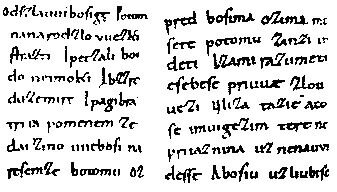 od szlauui bosige potom
na narod zlo uuezki
strazti Ipetzali boi
do neimoki Ibzzre
duzemirt Ipagibra
triia pomenem ze
dai zino uuebosi na
resemze botomu oz
pred bosima osima mo
sete potomu zinzi uvi
deti Izami razumeti
esebese priuuae zlou
uezi Uliza tazie aco
se imuigezim tere ne
priiaznina uznenauvi
desse Abosiu uzliubise